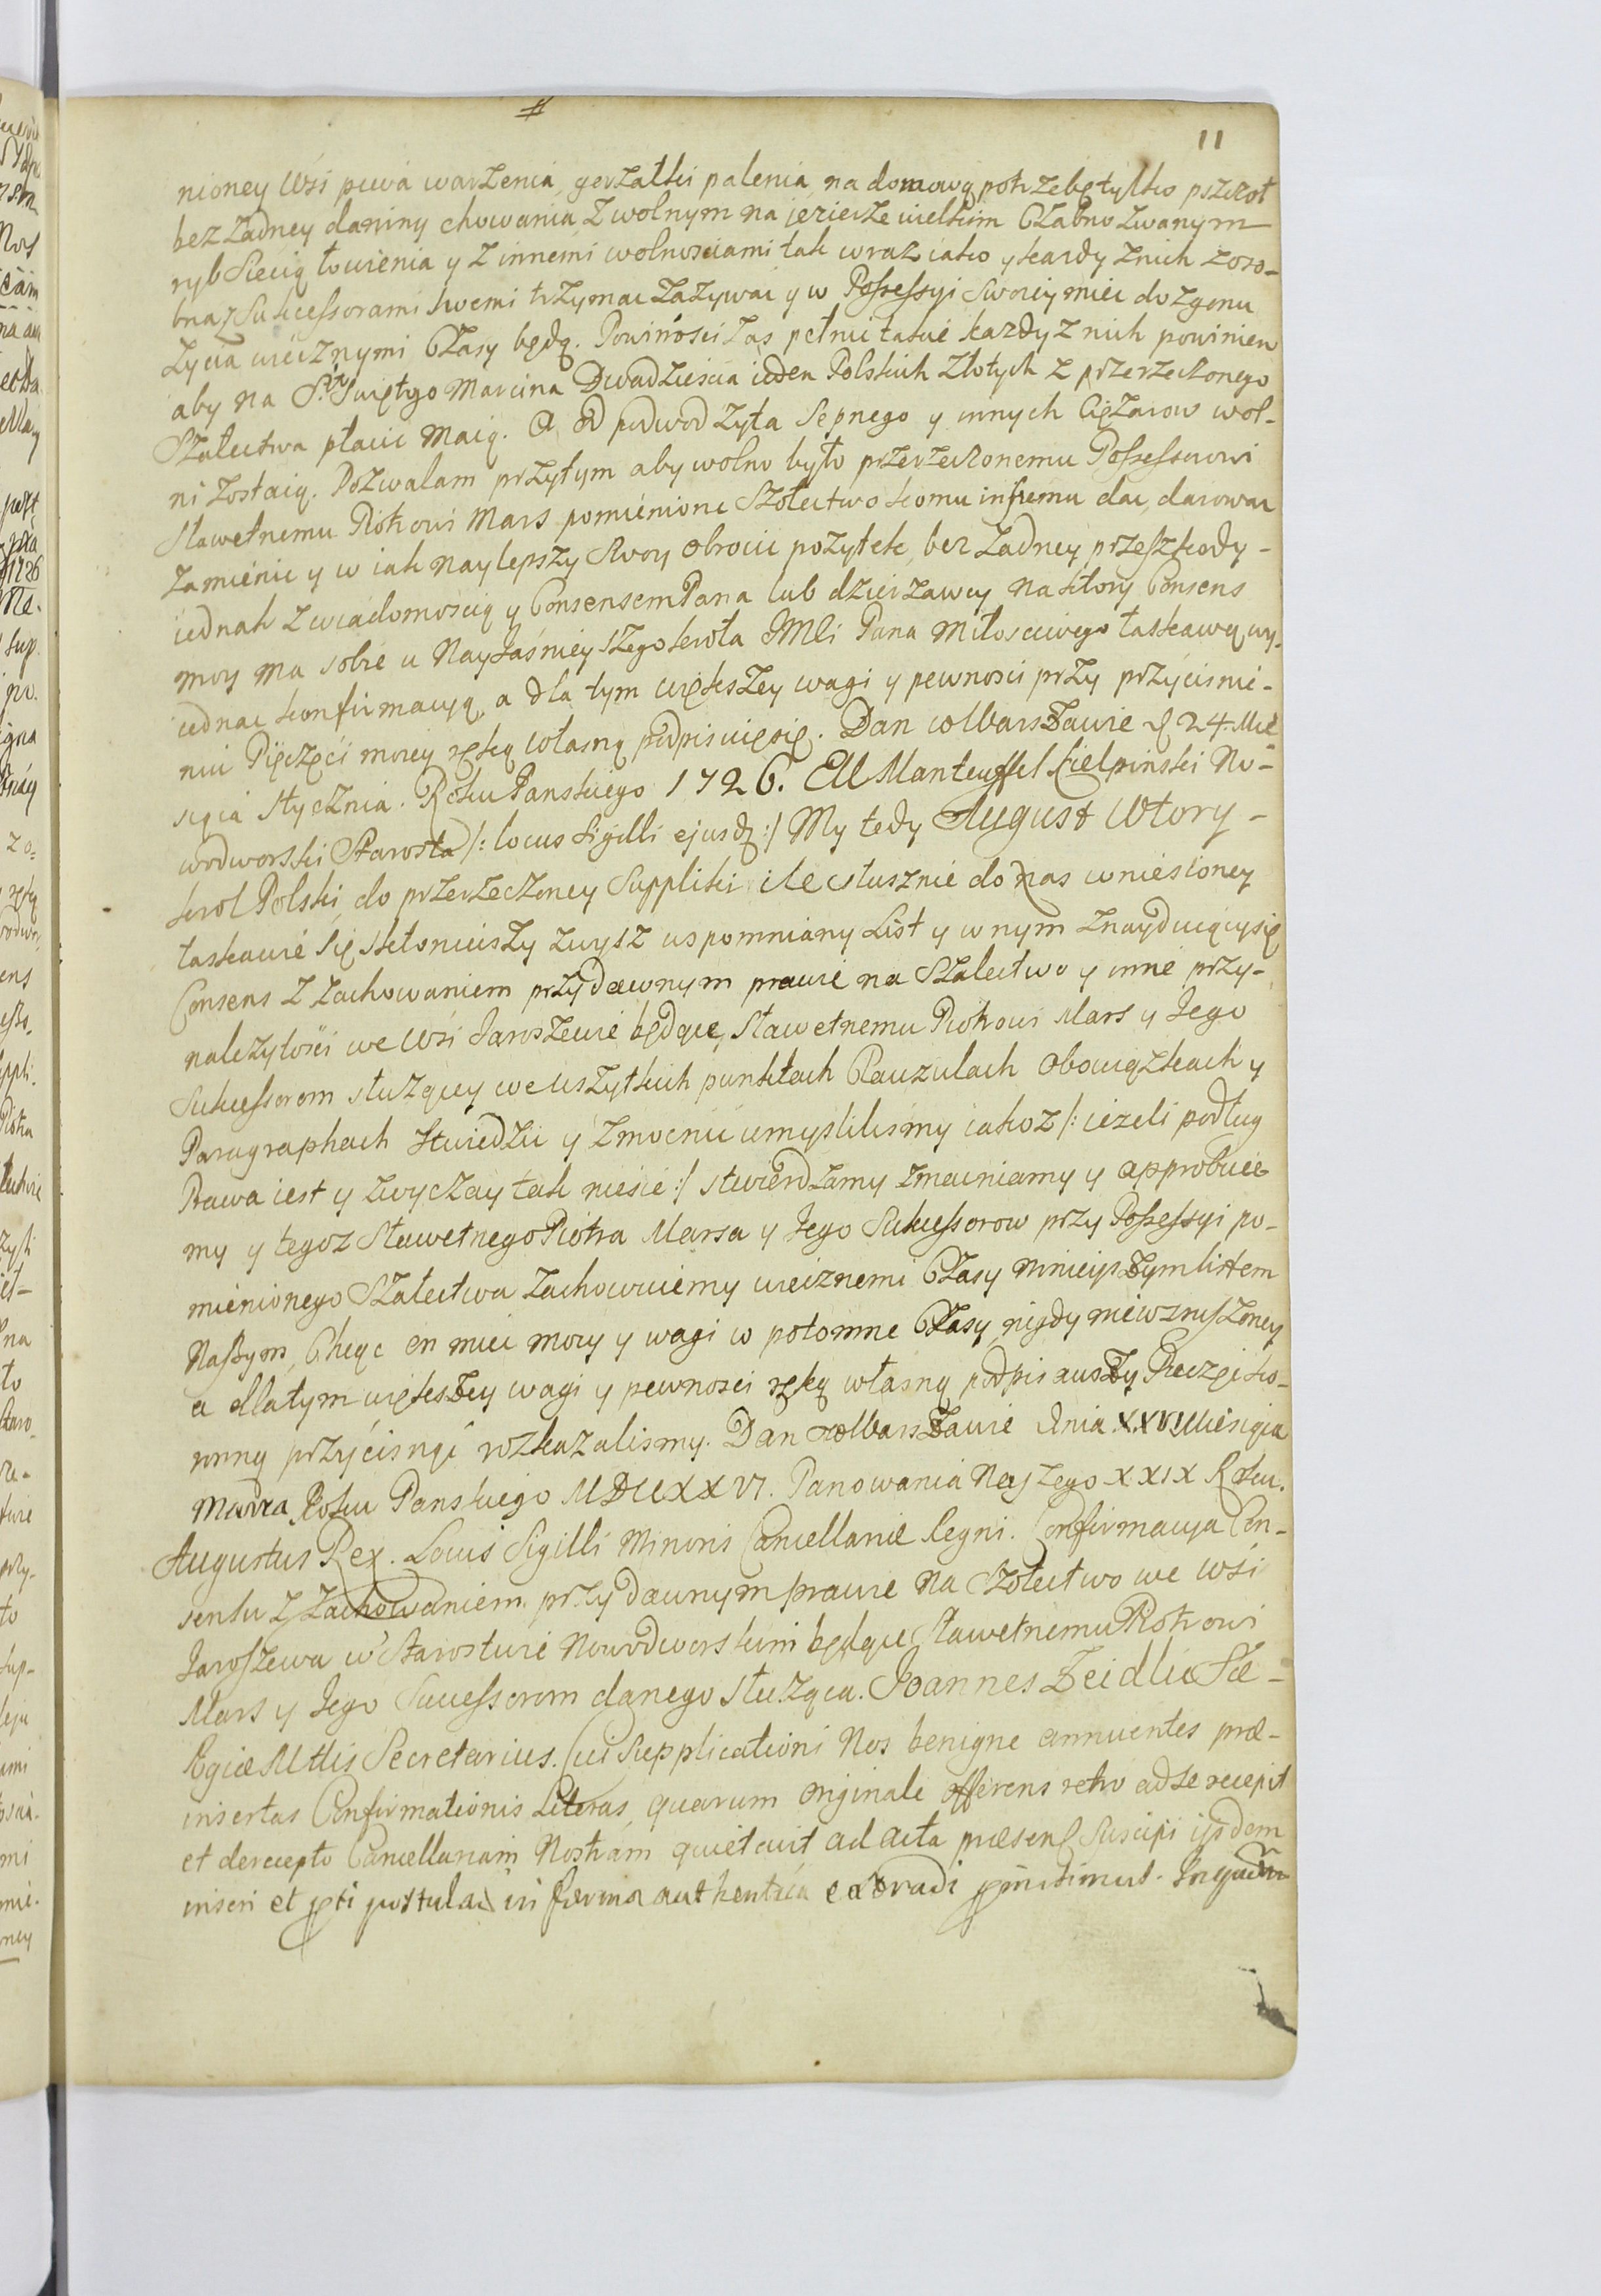 11
nioney Wsi piwa warzenia, gorzałki palenia, na domową potrzebę tylko pszczoł
bez żadney daniny chowania, z wolnym na jezierze wielkim zwanym
ryb siecią łowienia y z innemi wolnosciami tak wraz iako y kazdy z nich zoso-
bna z Sukcessorami swemi trzymac zazywac y w Possessyi swoiey miec do zgonu
zycia wiecznymi czasy będą. Powinosci zas pełnic takie kazdy z nich powinien
aby na S. Swiętego Marcina Dwadziescia ieden Polskich Złotych z przerzeczonego
Szołectwa płacic maią. A od podwod zyta Sepnego y innych Ciężarow wol-
ni zostaią. Pozwalam przytym aby wolno było przerzeczonemu Possessorowi
Sławetnemu Piotrowi Mars pomienione Szołectwo komu inszemu dac, darowac
zamienic y w iak naylepszy Swoy obrocic pozytek, bez zadney przeszkody -
iednak z wiadomoscią y Consensem Pana lub dzierzawcy na ktory Consens
moy ma sobie u Nayiasnieyszego krola JMci Pana Miłosciwego łaskawą wy-
iednac konfirmacyą, a dla tym większey wagi y pewnosci przy przycisnie-
niu Pięczęci moiey ręką własną podpisuięsię. Dan w Warszawie d 24. Mie-
siąca Stycznia. Roku Panskiego 1726. Manteuffel Kielpinski No-
wodworski Starosta /: locus Sigilli ejusd :/ My tedy August Wtory -
krol Polski, do przerzeczoney Suppliki ile słusznie do nas wniesioney
łaskawie się skłoniwszy zwysz uspomniany List y w nym znayduiącysię
Consens z zachowaniem przy dawnym prawie na Szołectwo y inne przy-
nalezytosci we Wsi Jaroszewie będące, Sławetnemu Piotrowi Mars y Jego
Sukcessorom słuzący we wszytkich punktach Clauzulach obowiązkach y
Paragraphach Stwiedzic y zmocnic umyslilismy iakoz /: iezeli podług
Prawa iest y zwyczay tak niesie :/ stwierdzamy zmacniamy y approbuie-
my y tegoz Sławetnego Piotra Marsa y Jego Sukcessorow przy Possessyi po-
mienionego Szołectwa zachowuiemy wiecznemi Czasy ninieyszym listem
Naszym, Chcąc on miec mocy y wagi w potomne Czasy nigdy niewzruszoney
a dla tym większey wagi y pewnosci ręką własną podpisawszy Pieczęć ko-
ronną przycisnąć rozkazalismy. Dan w Warszawie dnia XXVI Miesiąca
Marca Roku Panskiego MDCCXXVI. Panowania Naszego XXIX Roku.
Augustus Rex. Locus Sigilli Minoris Cancellariæ Regni. Confirmacya Con-
sensu z zachowaniem przy dawnym prawie na Szołectwo we Wsi
Jaroszewu w Starostwie Nowodworskim będące, Sławetnemu Piotrowi
Mars y Jego Sucessorom danego słuząca. Joannes Zeidlic Sæ-
Rgiæ Mttis Secretarius. Cui Supplicationi Nos benigne annuentes præ-
insertas Confirmationis Literas, quarum originale offerens retro ad se recepit
et de recepto Cancellariam Nostram quietavit ad acta præsens Suscipi ijsdem
inseri et pti postulan in forma authentica extradi pmisimus. In quoru